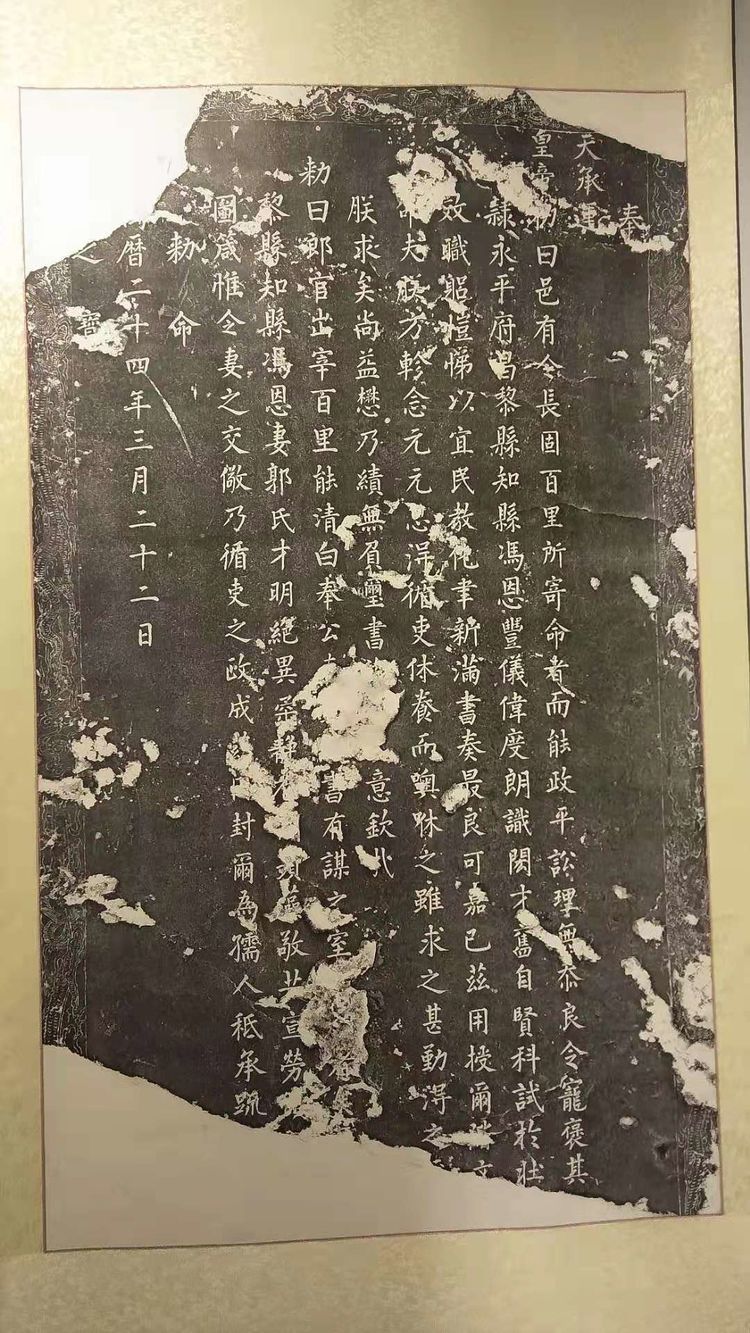 奉
天承運
皇帝勑曰邑有令長固百里所寄命者而能政平訟理無忝良令寵褒其
隸永平府昌黎縣知縣馮恩豐儀偉度朗識閎才舊自賢科試於壯
職躬愷悌以宜民教化聿新滿書奏最良可嘉已茲用授爾文
命夫朕方軫念元元心淂循吏休養而噢咻之雖求之甚勤淂之
朕求矣尚益懋乃績無負璽書意欽此
勑曰郎官出宰百里能清白奉公書有謀之室
黎縣知縣馮恩妻郭氏才明絕異柔靜蘋敬共宣勞
圖箴惟令妻之交儆乃循吏之政成封爾為孺人秪承
勑命
曆二十四年三月二十二日
之寶